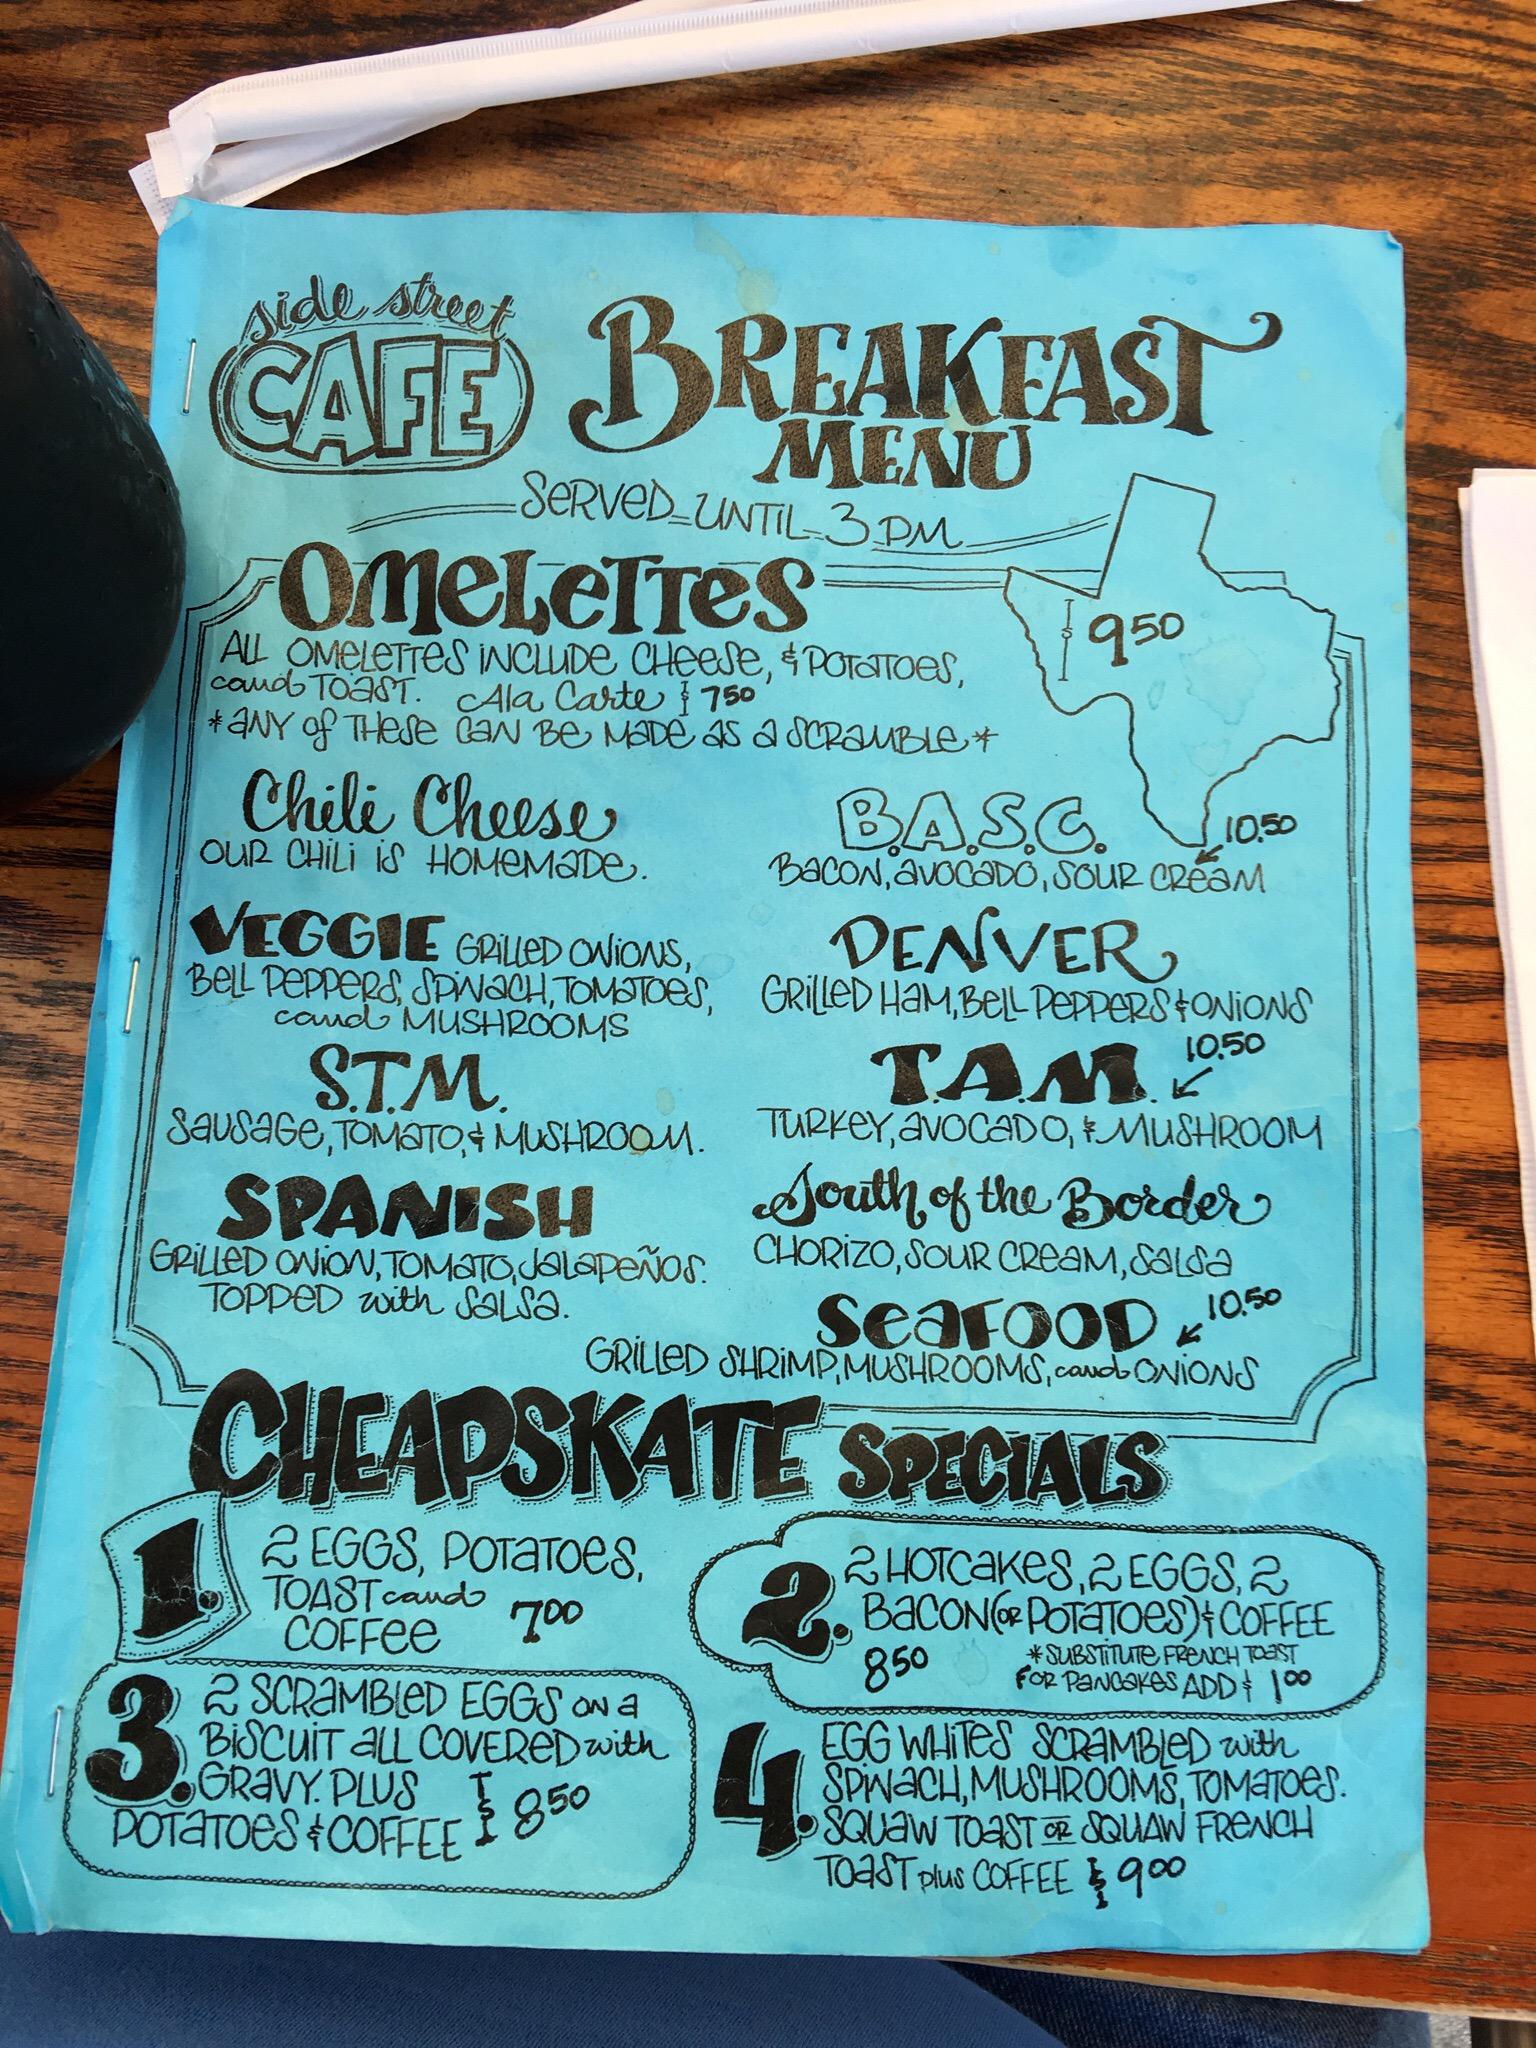 side street
CAFE
BREAKFAST
MENU
SERVED UNTIL 3 PM
OMELETTES
ALL OMELETTES INCLUDE CHEESE, & POTATOES,
and TOAST. Ala Carte $ 7 50
*ANY OF THESE CAN BE MADE AS A SCRAMBLE*
$ 9 50
Chili Cheese
OUR CHILI IS HOMEMADE.
B.A.S.C. 10.50
BACON, AVOCADO, SOUR CREAM
VEGGIE GRILLED ONIONS,
BELL PEPPERS, SPINACH, TOMATOES,
and MUSHROOMS
DENVER
GRILLED HAM, BELL PEPPERS & ONIONS
S.T.M.
SAUSAGE, TOMATO, & MUSHROOM.
T.A.M. 10.50
TURKEY, AVOCADO, & MUSHROOM
SPANISH
GRILLED ONION, TOMATO, JALAPEÑOS.
TOPPED with SALSA.
South of the Border
CHORIZO, SOUR CREAM, SALSA
SEAFOOD 10.50
GRILLED SHRIMP, MUSHROOMS, and ONIONS
CHEAPSKATE SPECIALS
1. 2 EGGS, POTATOES,
TOAST and
COFFEE 7 00
2. 2 HOTCAKES, 2 EGGS, 2
BACON (OR POTATOES) & COFFEE
8 50 *SUBSTITUTE FRENCH TOAST
FOR PANCAKES ADD $ 1 00
3. 2 SCRAMBLED EGGS ON A
BISCUIT ALL COVERED with
GRAVY. PLUS
POTATOES & COFFEE $ 8 50
4. EGG WHITES SCRAMBLED with
SPINACH, MUSHROOMS, TOMATOES.
SQUAW TOAST OR SQUAW FRENCH
TOAST plus COFFEE $ 9 00